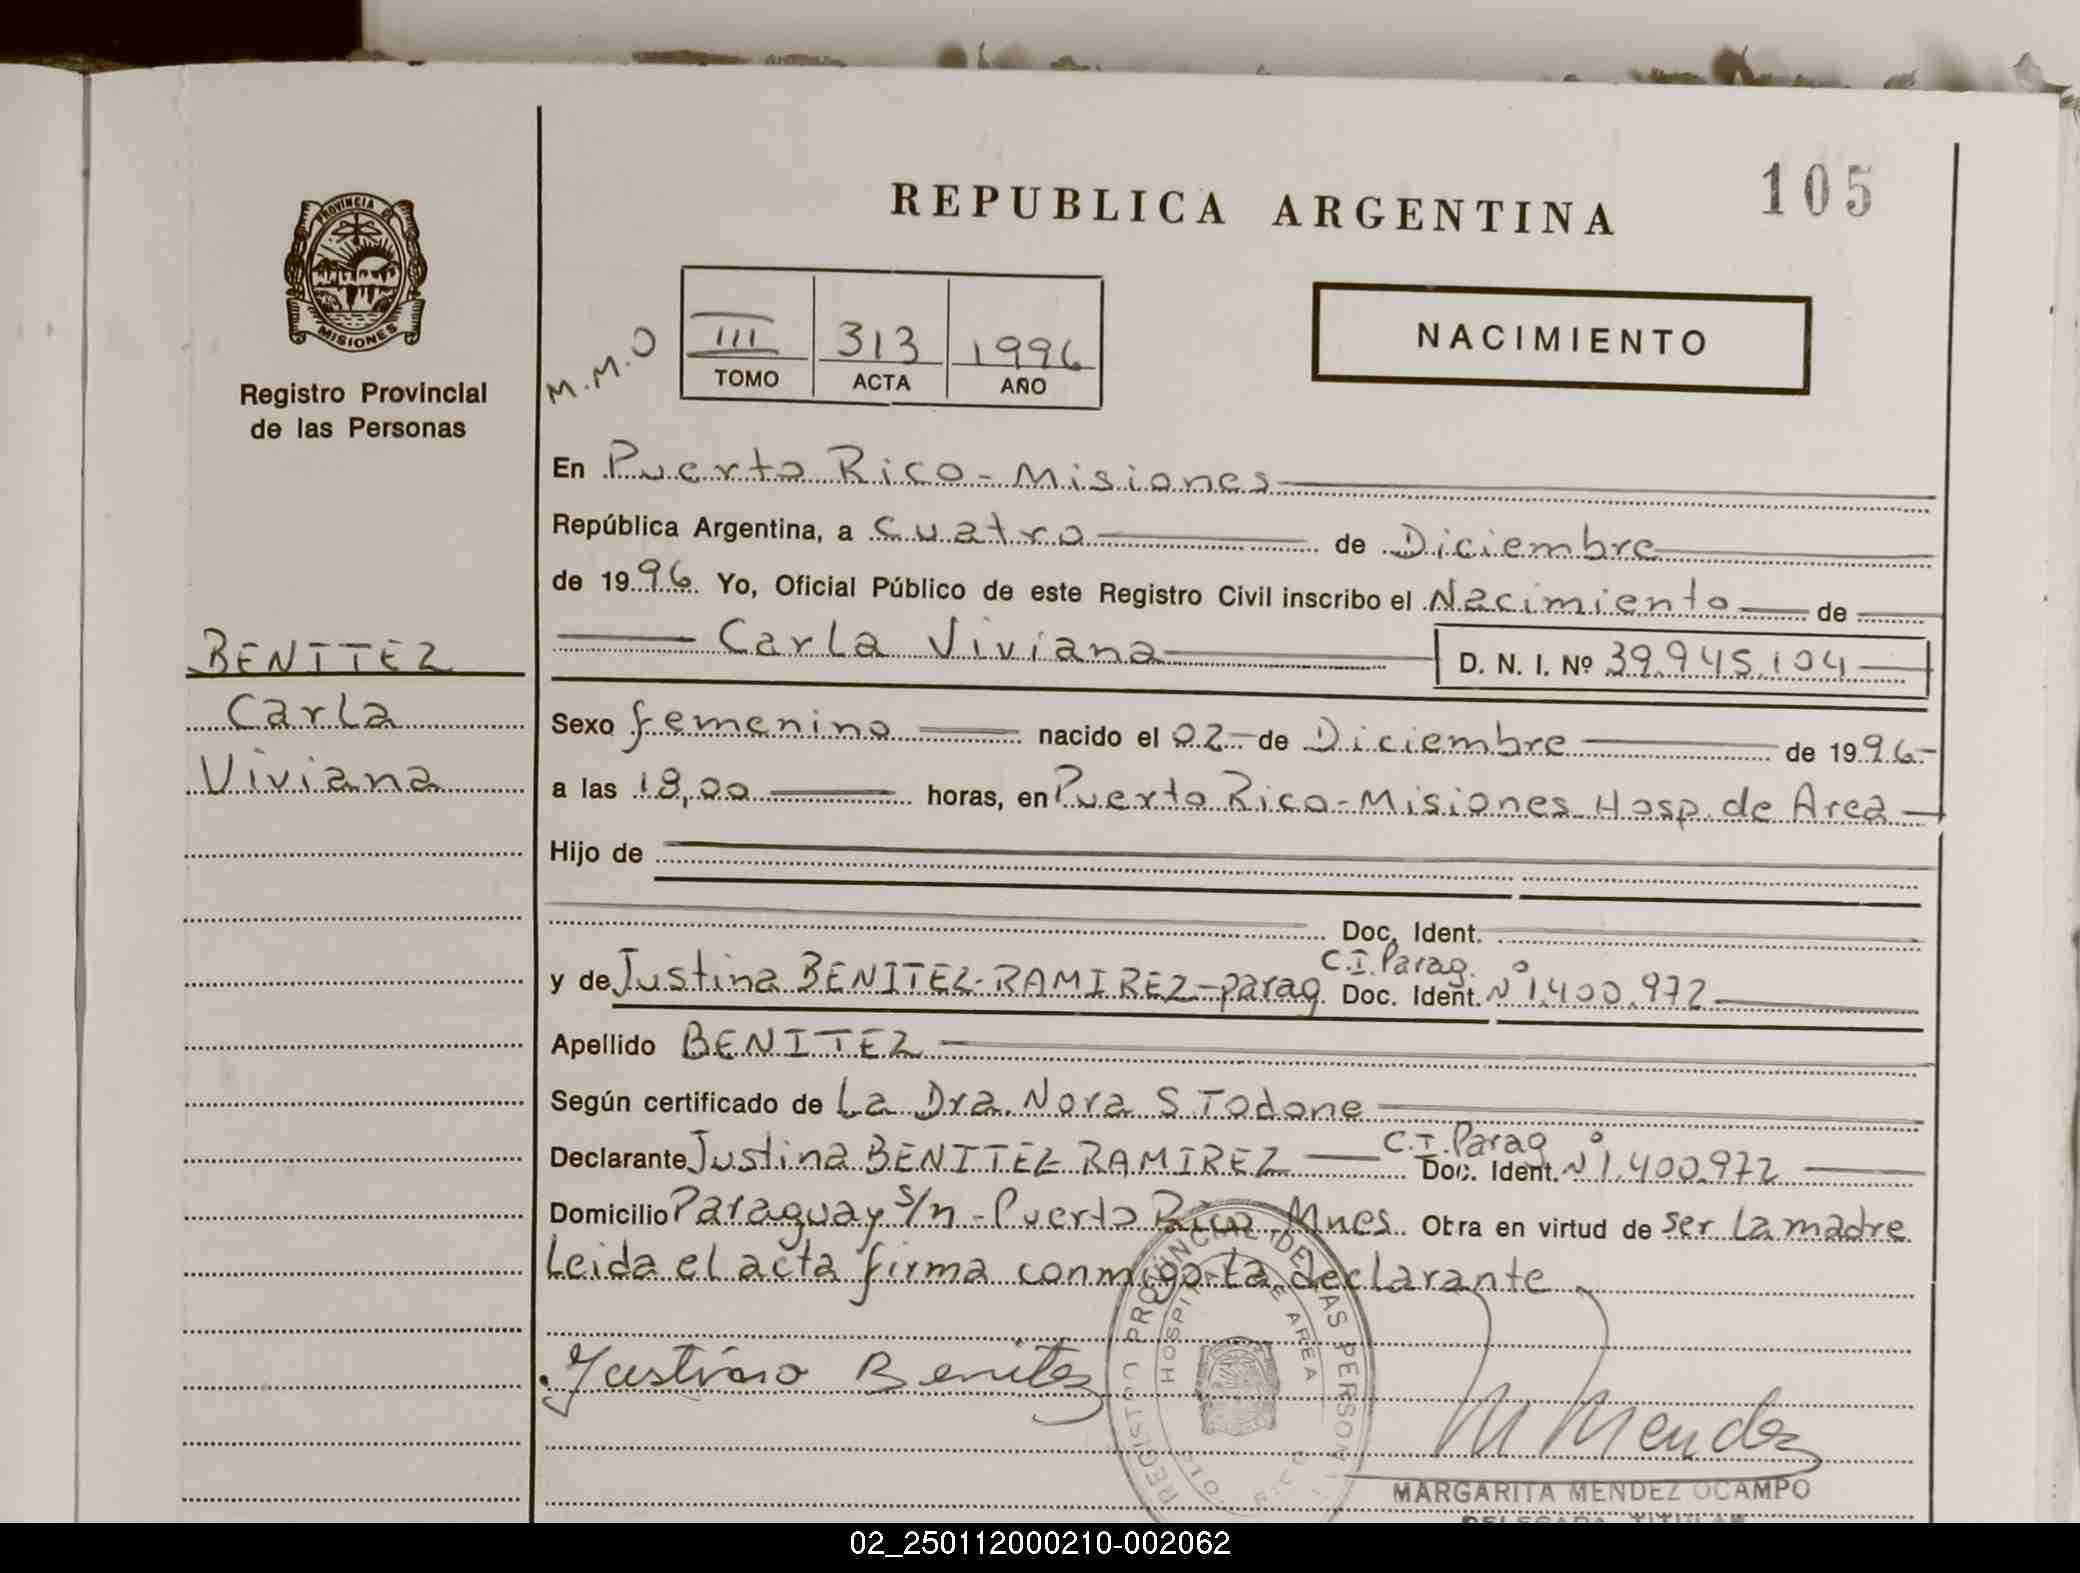 REPUBLICA ARGENTINA
105
PROVINCIA DE
MISIONES
Registro Provincial
de las Personas
M.M.O
III 313 1996
TOMO ACTA AÑO
NACIMIENTO
En Puerto Rico - Misiones
República Argentina, a cuatro de Diciembre
de 1996 Yo, Oficial Público de este Registro Civil inscribo el Nacimiento de
Carla Viviana D. N. I. Nº 39.945.104
BENITEZ
Carla
Viviana
Sexo femenino nacido el 02 de Diciembre de 1996
a las 18,00 horas, en Puerto Rico - Misiones Hosp. de Area
Hijo de
Doc. Ident.
y de Justina BENITEZ - RAMIREZ - parag. Doc. Ident. C.I. Parag. Nº 1.400.972
Apellido BENITEZ
Según certificado de La Dra. Nora S Todone
Declarante Justina BENITEZ RAMIREZ Doc. Ident. C.I. Parag Nº 1.400.972
Domicilio Paraguay s/n - Puerto Rico - Mnes. Obra en virtud de ser la madre
Leida el acta firma conmigo la declarante
Justina Benitez
REGISTRO PROVINCIAL DE LAS PERSONAS
HOSPITAL DE AREA
M Mendez
MARGARITA MENDEZ OCAMPO
DELEGADA TITULAR
02_250112000210-002062